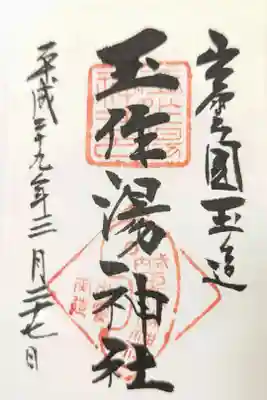 出雲國玉造
玉作湯神社
平成二十九年三月二十七日